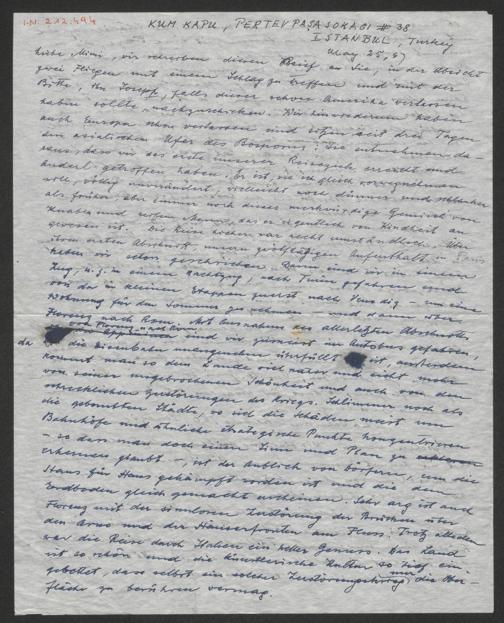 I.N. 212.494
KUM KAPU, PERTEVPAŞA SOKAGI # 38
ISTANBUL, Turkey
May 25, 47
Liebe Mimi, wir schreiben diesen Brief an Sie, in der Absicht
zwei Fliegen mit einem Schlag zu treffen und mit der
Bitte, ihn Joseph, falls dieser schon Amerika verlassen
haben sollte, nachzuschicken. Wir hinwiederum haben
auch Europa schon verlassen und sitzen seit drei Tagen
am asiatischen Ufer des Bosporus. Sie entnehmen da-
raus, dass wir das erste unserer Reiseziele erreicht und
getroffen haben. Er ist, wie ich gleich vorwegnehmen
will, völlig unverändert, vielleicht noch dünner und schlanker
als früher, aber immer noch dieses merkwürdige Gemisch von
Knaben und das er eigentlich von Kindheit an
gewesen ist. Die Reise hierher war recht umständlich. Über
ihren ersten Abschnitt, unsern Aufenthalt in Paris
haben wir schon geschrieben. Dann sind wir in einem
Zug, u.z. in einem Nachtzug, nach Turin gefahren und
von da in kleinen Etappen zuerst nach Venedig – um eine
Wohnung für den Sommer zu nehmen – und dann über
Florenz nach Rom. Mit Ausnahme des allerletzten Abschnitts
Florenz und Rom sind wir zumeist im Autobus gefahren,
da die Eisenbahn unangenehm überfüllt ist, ausserdem
kommt man so dem Lande viel näher und sieht mehr
von seiner ungebrochenen Schönheit und auch von den
schrecklichen Zerstörungen des Kriegs. Schlimmer noch als
die gebombten Städte, wo sich die Schäden meist um
Bahnhöfe und ähnliche strategische Punkte konzentrieren
– so dass man doch einen Sinn und Plan zu
erkennen glaubt –, ist der Anblick von Dörfern, um die
Haus für Haus gekämpft worden ist und die dem
Erdboden gleich gemacht erscheinen. Sehr arg ist auch
Florenz mit der sinnlosen Zerstörung der Brücken über
den Arno und der Häuserfronten am Fluss. Trotz alledem
war die Reise durch Italien ein heller Genuss. Das Land
ist so schön und die künstlerische Kultur so tief ein-
gebettet, dass selbst ein solcher Zerstörungskrieg nur die Ober-
fläche zu berühren vermag.